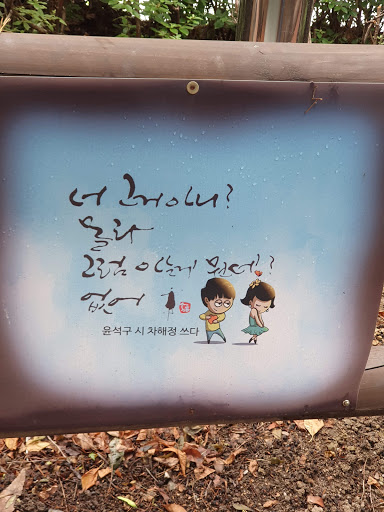 너 그거 아니?
몰라
그럼 아는게 뭔데!?
없어
윤석구 시 차해정 쓰다